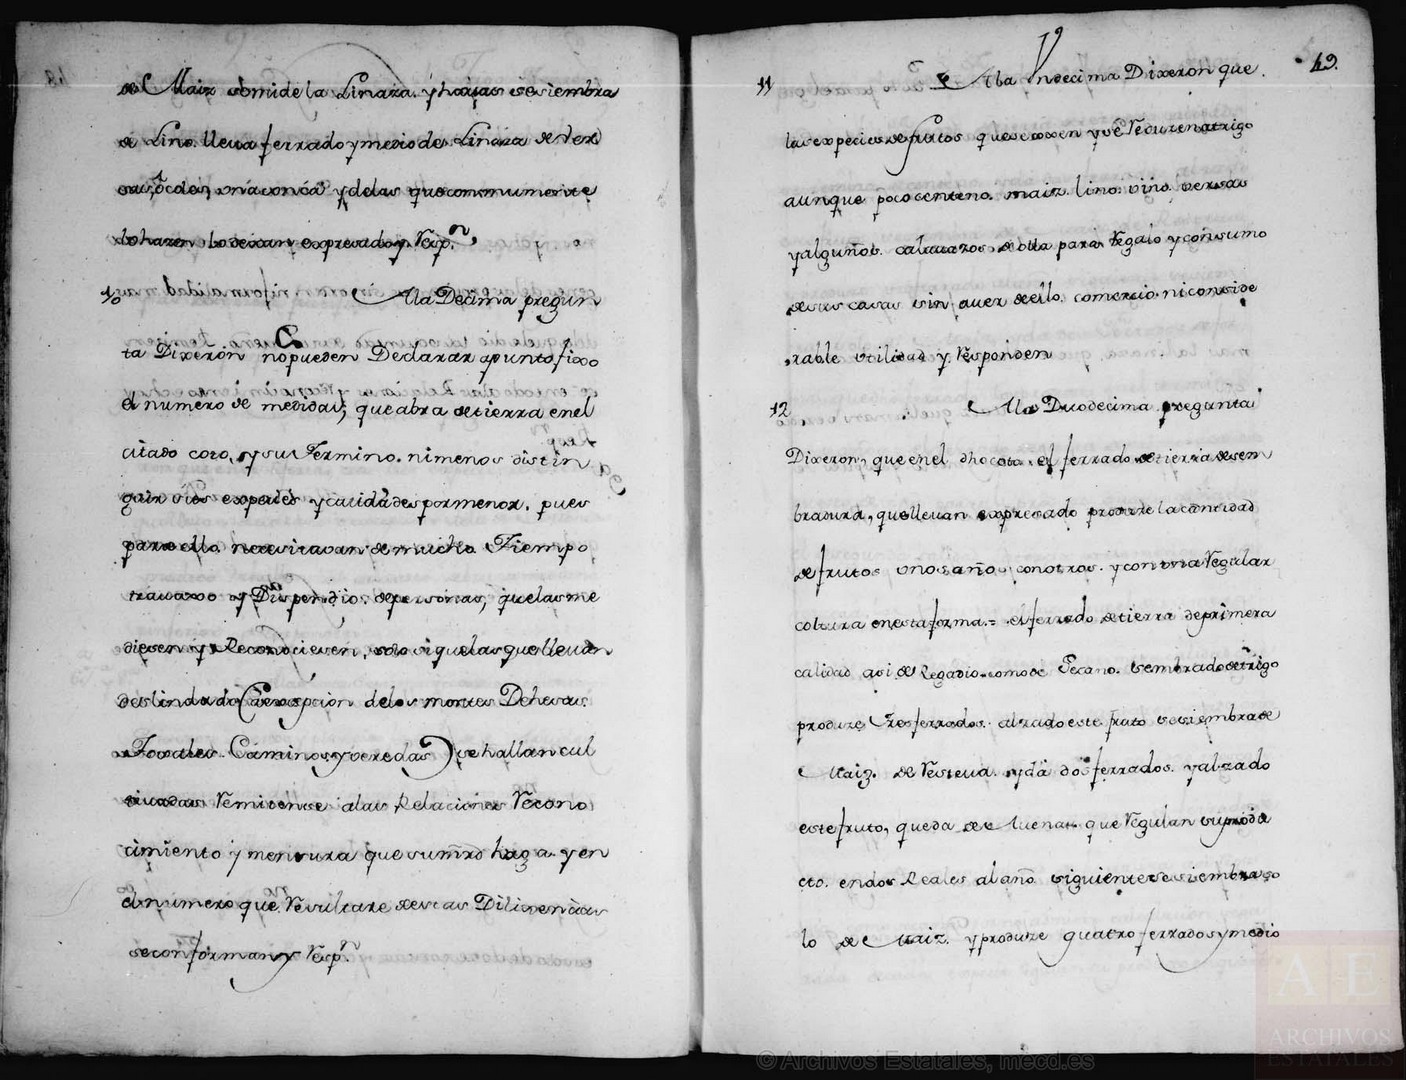 de Maiz
de Lino lleua ferrado y medio de Linaza
y de las que comunmente
lo hazen lo dexan expresado y Resp.n
10 A la Decima pregun
ta Dixeron no pueden Declarar a punto fixo
el numero de medidas, que abra de tierra en el
citado coto, y su Termino. ni menos distin
guir sus expecies y calidades por menor. pues
para ello necesitauan de mucho Tiempo
trauaxo y Dispendio de personas, que las me
diesen y Reconociesen, solo si que las que lleuan
deslindado (a excepcion de los montes Dehesas
Caminos y veredas) se hallan cul
tiuadas Remitense a las Relaciones Recono
cimiento y mensura que su mrd haga y en
el numero que Resultare de estas Dilixencias
se conforman y Resp.n
49.
11 A la Undecima Dixeron que
las expecies de frutos que se coxen y se Reducen a trigo
aunque poco centeno. maiz. lino. vino. versas
y algunos calauazos de olla para Regalo y consumo
de sus casas sin auer de ello comercio ni conside
rable utilidad y Responden
12 A la Duodecima pregunta
Dixeron, que en el dho coto el ferrado de tierra de sem
bradura, que lleuan expresado produze la cantidad
de frutos unos años con otros. y con una Regular
coltura en esta forma = el ferrado de tierra de primera
calidad asi de Regadio como de Secano. sembrado de trigo
produze tres ferrados. alzado este fruto se siembra de
Maiz. de Resteua. y da dos ferrados. y alzado
este fruto, queda de Auena que Regulan su produ
cto. en dos Reales al año siguiente se siembra so
lo de Maiz. y produze quatro ferrados y medio
© Archivos Estatales, mecd.es
AE
ARCHIVOS
ESTATALES